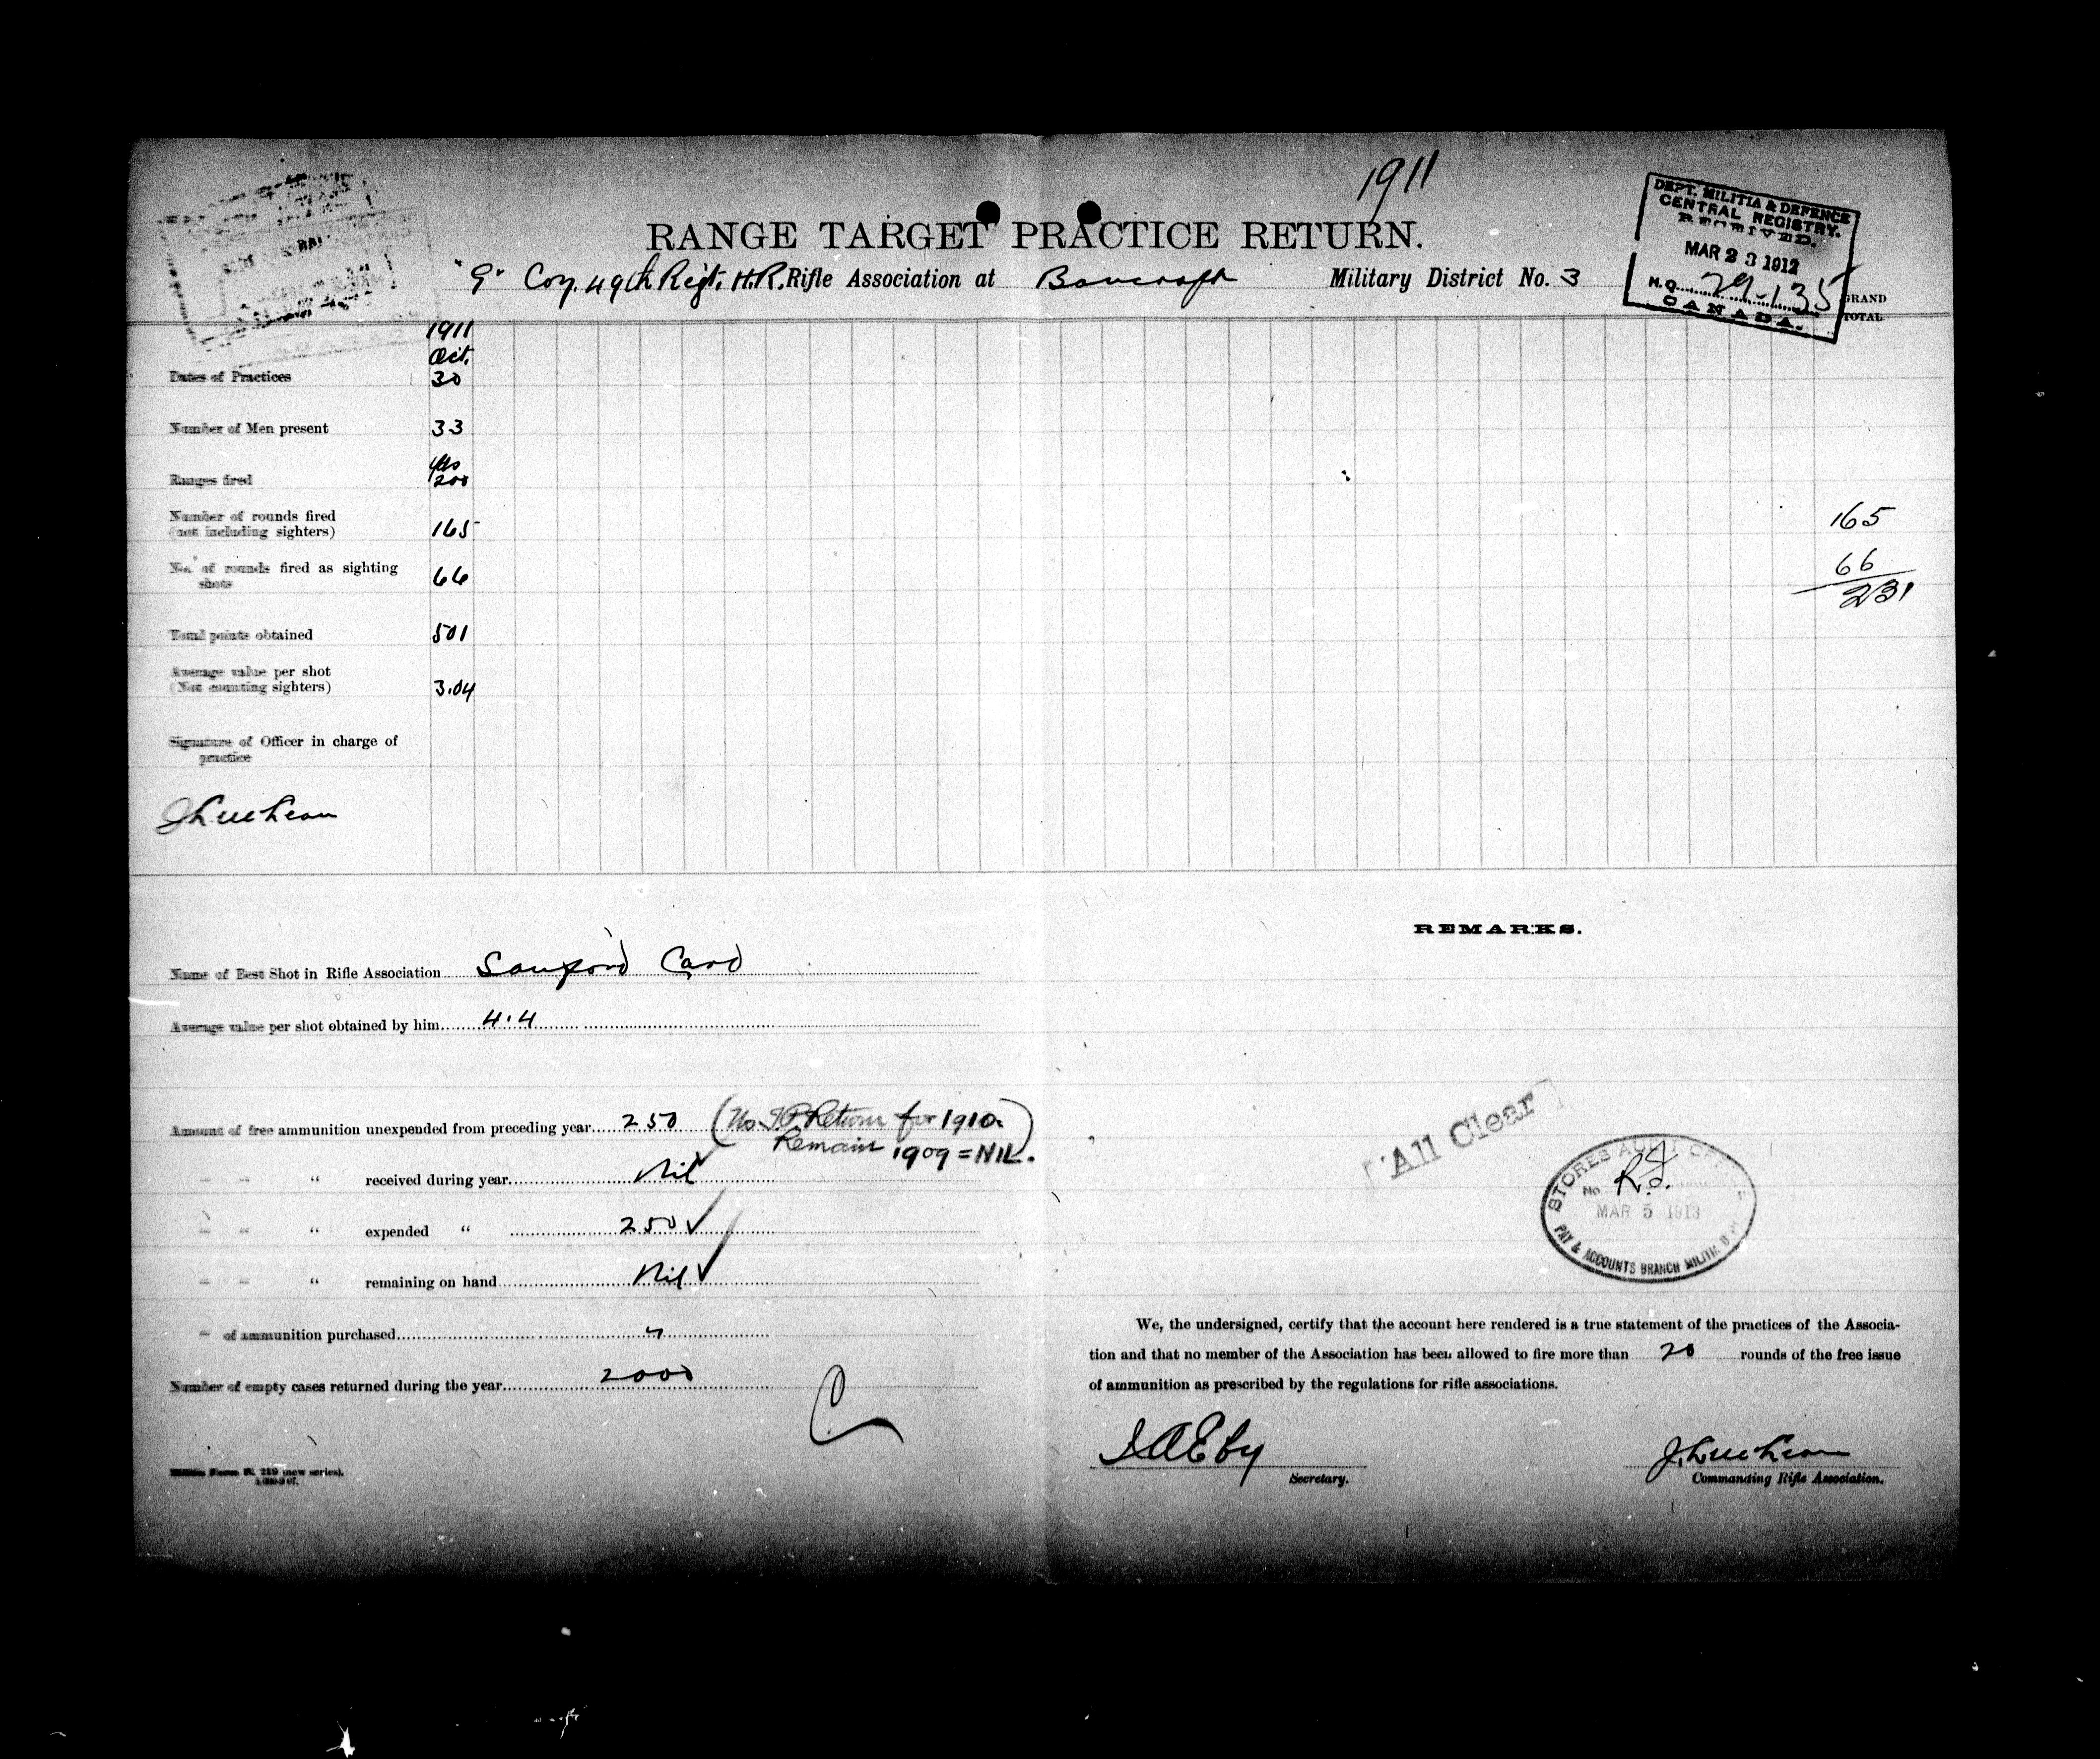 1911
RANGE TARGET PRACTICE RETURN.
"G" Coy. 49th Regt. H.R. Rifle Association at Bancroft Military District No. 3
DEPT. MILITIA & DEFENCE
CENTRAL REGISTRY.
RECEIVED.
MAR 23 1912
H.Q. 29-135
CANADA.
GRAND
TOTAL
1911
Oct.
Dates of Practices 30
Number of Men present 33
Yds
Ranges fired 200
Number of rounds fired
(not including sighters) 165 165
No. of rounds fired as sighting
shots 66 66
231
Total points obtained 501
Average value per shot
(Not counting sighters) 3.04
Signature of Officer in charge of
practice
REMARKS.
Name of Best Shot in Rifle Association Sanford Card
Average value per shot obtained by him 4.4
Amount of free ammunition unexpended from preceding year 250 (No T.P. Return for 1910.
Remain 1909 = NIL.)
" " " received during year Nil
" " " expended " 250 ✓
" " " remaining on hand Nil ✓
" of ammunition purchased "
Number of empty cases returned during the year 2000
C
All Clear
STORES AUDIT
No R.J.
MAR 5 1913
PAY & ACCOUNTS BRANCH MILITIA
We, the undersigned, certify that the account here rendered is a true statement of the practices of the Associa-
tion and that no member of the Association has been allowed to fire more than 20 rounds of the free issue
of ammunition as prescribed by the regulations for rifle associations.
Secretary.
Commanding Rifle Association.
(new series).